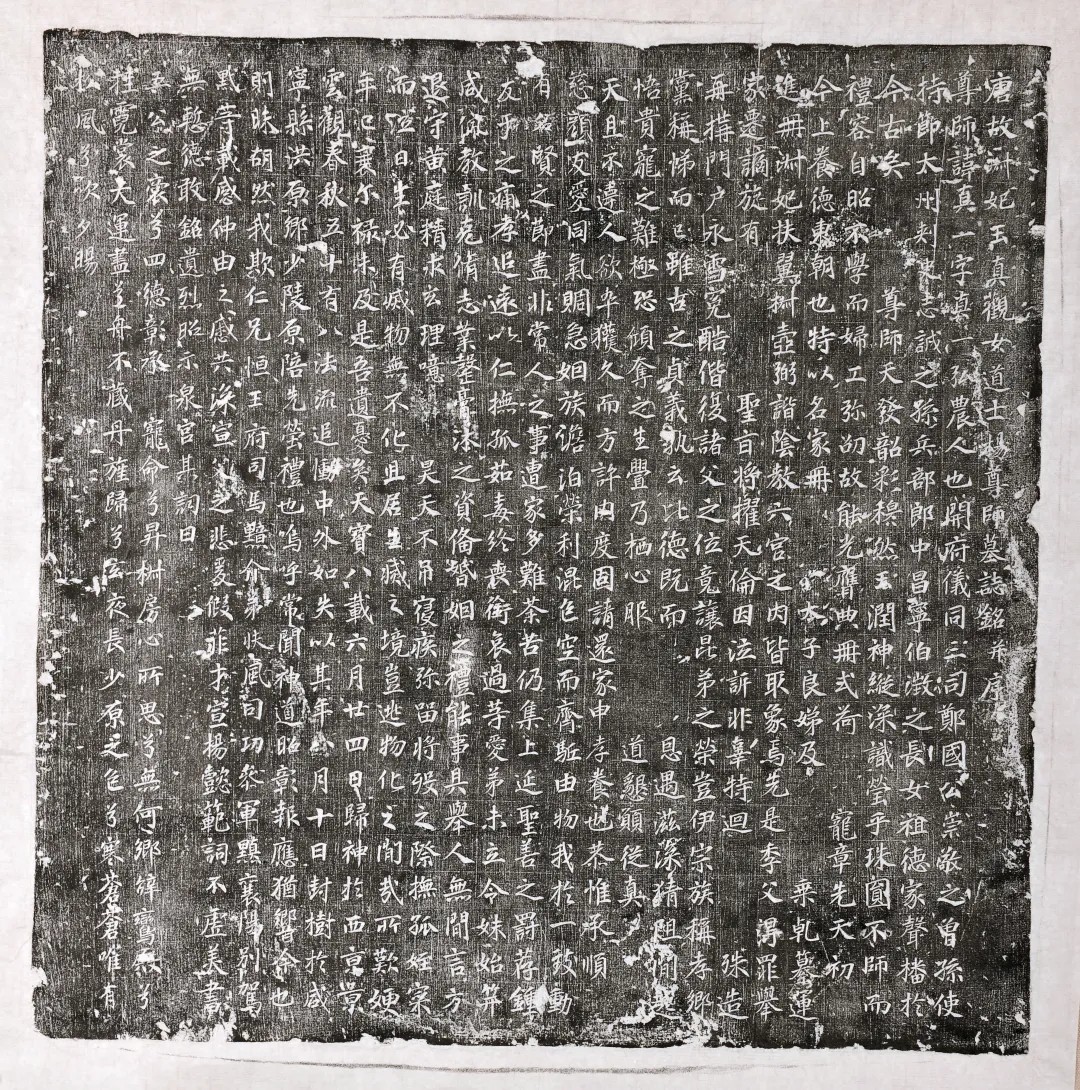 唐故淑妃玉真觀女道士楊尊師墓誌銘并序
尊師諱真一字真一弘農人也開府儀同三司鄭國公崇敬之曾孫使
持節大州刾史志誠之孫兵部郎中昌寧伯澂之長女祖德家聲播於
今古矣 尊師天發韶彩穆然玉潤神縱深識瑩乎珠圓不師而
禮容自昭不學而婦工弥劭故能光膺典冊式荷 寵章先天初
今上養德東朝也特以名家冊 太子良娣及 乘乹纂運
進冊淑妃扶翼樹壼弼諧陰教六宮之內皆取象焉先是季父淂罪舉
家遷謫旋有 聖旨將擢天倫因泣訴非辜特迴 殊造
再搆門戶永雪冤酷偕復諸父之位竟讓昆弟之榮豈伊宗族稱孝鄉
黨稱悌而已雖古之貞義孰云比德既而 恩遇滋深猜阻間起
悟貴寵之難極恐傾奪之生舋乃栖心服 道懇願從真
天且不違人欲卒獲久而方許內度因請還家申孝養也恭惟承順
慈顏友愛同氣賙急姻族澹泊榮利混色空而齊駈由物我於一致動
有名賢之節盡非常人之事遭家多難荼苦仍集上延聖善之罸荐鍾
友于之痛孝追遠以仁撫孤茹毒終喪銜哀過等愛弟未立令妹始笄
咸佩教訓克脩志業罄 之資俻婚姻之禮能事具舉人無間言方
退守黃庭精求玄理噫 昊天不吊寢疾弥留將殁之際撫孤姪寀
而泣曰生必有滅物無不化且居生滅之境豈逃物化之間㢤所歎姬
年 襄尒祿未及是吾遺憂矣天寶八載六月廿四日歸神於西京景
雲觀春秋五十有八法流追慟中外如失以其年 月十日封樹於咸
寧縣洪原鄉少陵原陪先塋禮也嗚呼常聞神道昭彰報應猶響今也
則昧胡然我欺仁兄恒王府司馬豔 弟扶風司功叅軍黯襄陽別駕
默等載感仲由之慼共深宣 之悲爰假菲才宣揚懿範詞不虛美書
無慙德敢銘遺烈昭示泉宮其詞曰
吾公之裔兮四德彰承 寵命兮昇椒房心所思兮無何鄉緯鸞 兮
秘霓裳天運盡兮舟不藏丹旐歸兮玄夜長少原之色兮寒蒼蒼唯有
松風兮吹夕暘